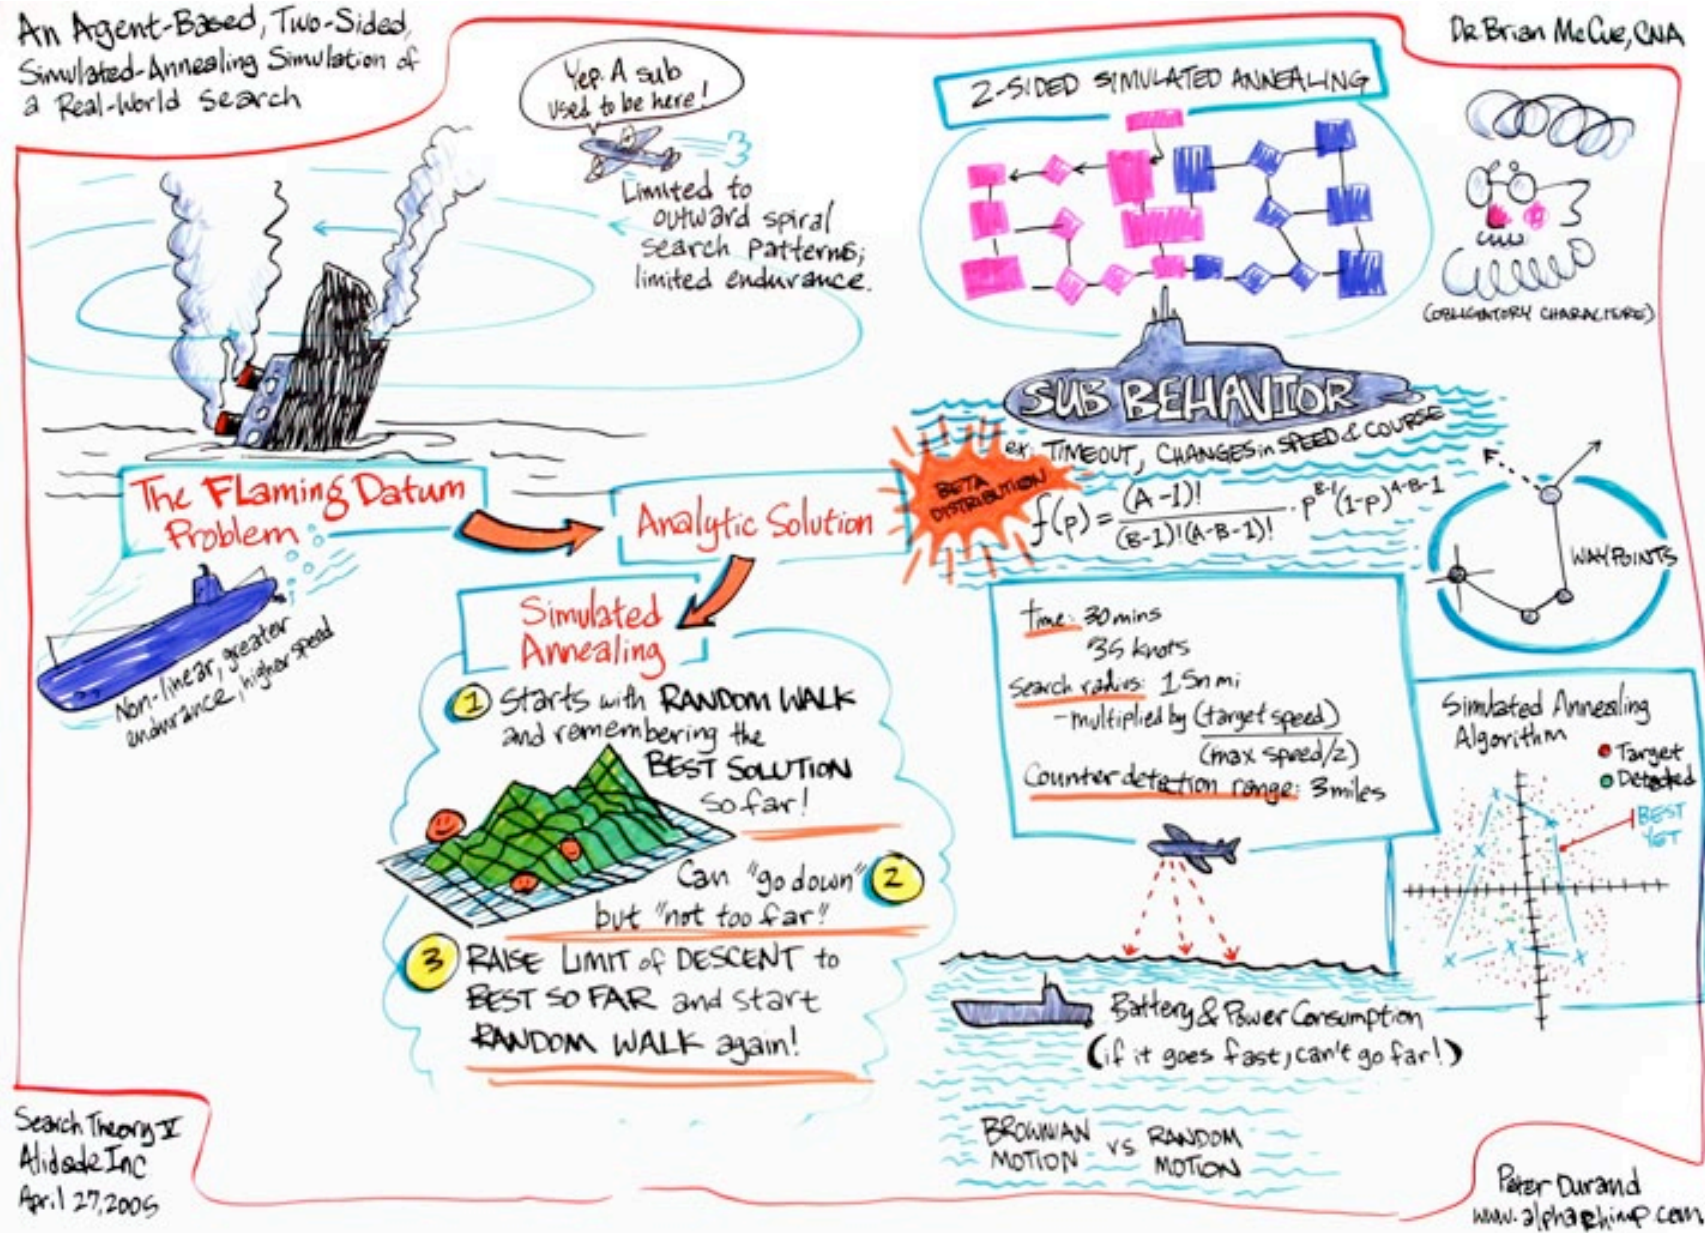 An Agent-Based, Two-Sided,
Simulated-Annealing Simulation of
a Real-World Search
Dr Brian McCue, CNA
Yep. A sub
used to be here!
Limited to
outward spiral
search patterns;
limited endurance.
2-SIDED SIMULATED ANNEALING
(OBLIGATORY CHARACTURE)
SUB BEHAVIOR
ex: TIMEOUT, CHANGES in SPEED & COURSE
The FLaming Datum
Problem
Analytic Solution
BETA
DISTRIBUTION
f(p) = (A-1)! / (B-1)!(A-B-1)! · p^B-1 (1-p)^A-B-1
WAYPOINTS
Non-linear, greater
endurance, higher speed
Simulated
Annealing
1 Starts with RANDOM WALK
and remembering the
BEST SOLUTION
so far!
Can "go down" 2
but "not too far"
3 RAISE LIMIT of DESCENT to
BEST SO FAR and start
RANDOM WALK again!
Time: 30 mins
35 knots
Search radius: 15n mi
- multiplied by (target speed)
(max speed/2)
Counter detection range: 3 miles
Simulated Annealing
Algorithm
Target
Detected
BEST
YET
Battery & Power Consumption
(if it goes fast, can't go far!)
BROWNIAN
MOTION
vs
RANDOM
MOTION
Search Theory V
Alidade Inc
April 27, 2005
Peter Durand
www.alphachimp.com